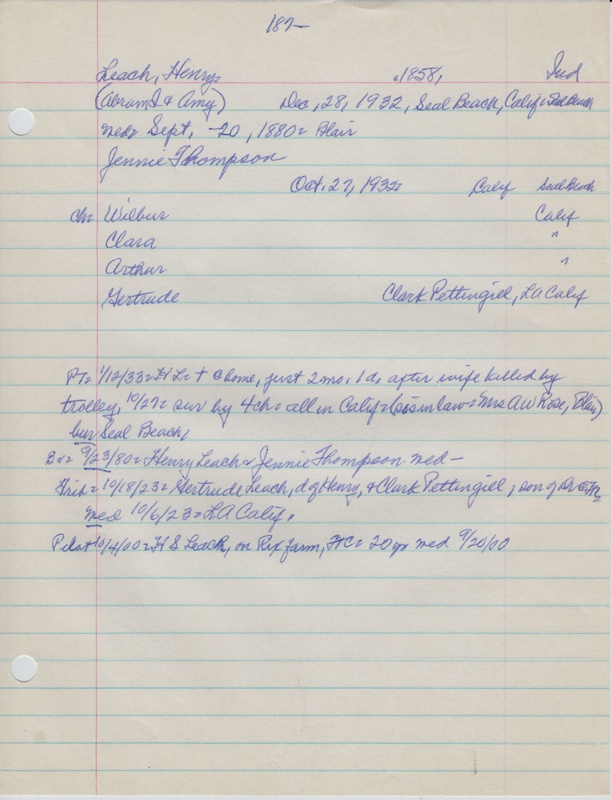 187-
Leach, Henry, 1858, Ind
(Abram I & Amy) Dec, 28, 1932, Seal Beach, Calif = Seal Beach
med= Sept, -20, 1880= Blair
Jennie Thompson
Oct. 27, 1932 Calif Seal Beach
ch= Wilbur Calif
Clara "
Arthur "
Gertrude Clark Pettingiel, LA Calif
PT= 1/12/33= H L= + @ home, just 2 mo. 1 d. after wife killed by
trolley, 10/27= sur by 4 ch= all in Calif= (sis in law= Mrs A W Rose, Blair)
bur Seal Beach,
B = 9/23/80= Henry Leach & Jennie Thompson med-
Trib= 10/18/23= Gertrude Leach, d of Henry, & Clark Pettingiel, son of Dr
med 10/6/23= LA Calif,
Pilot 10/4/00= H S Leach, on Rix farm, FtC= 20 yr med 9/20/00